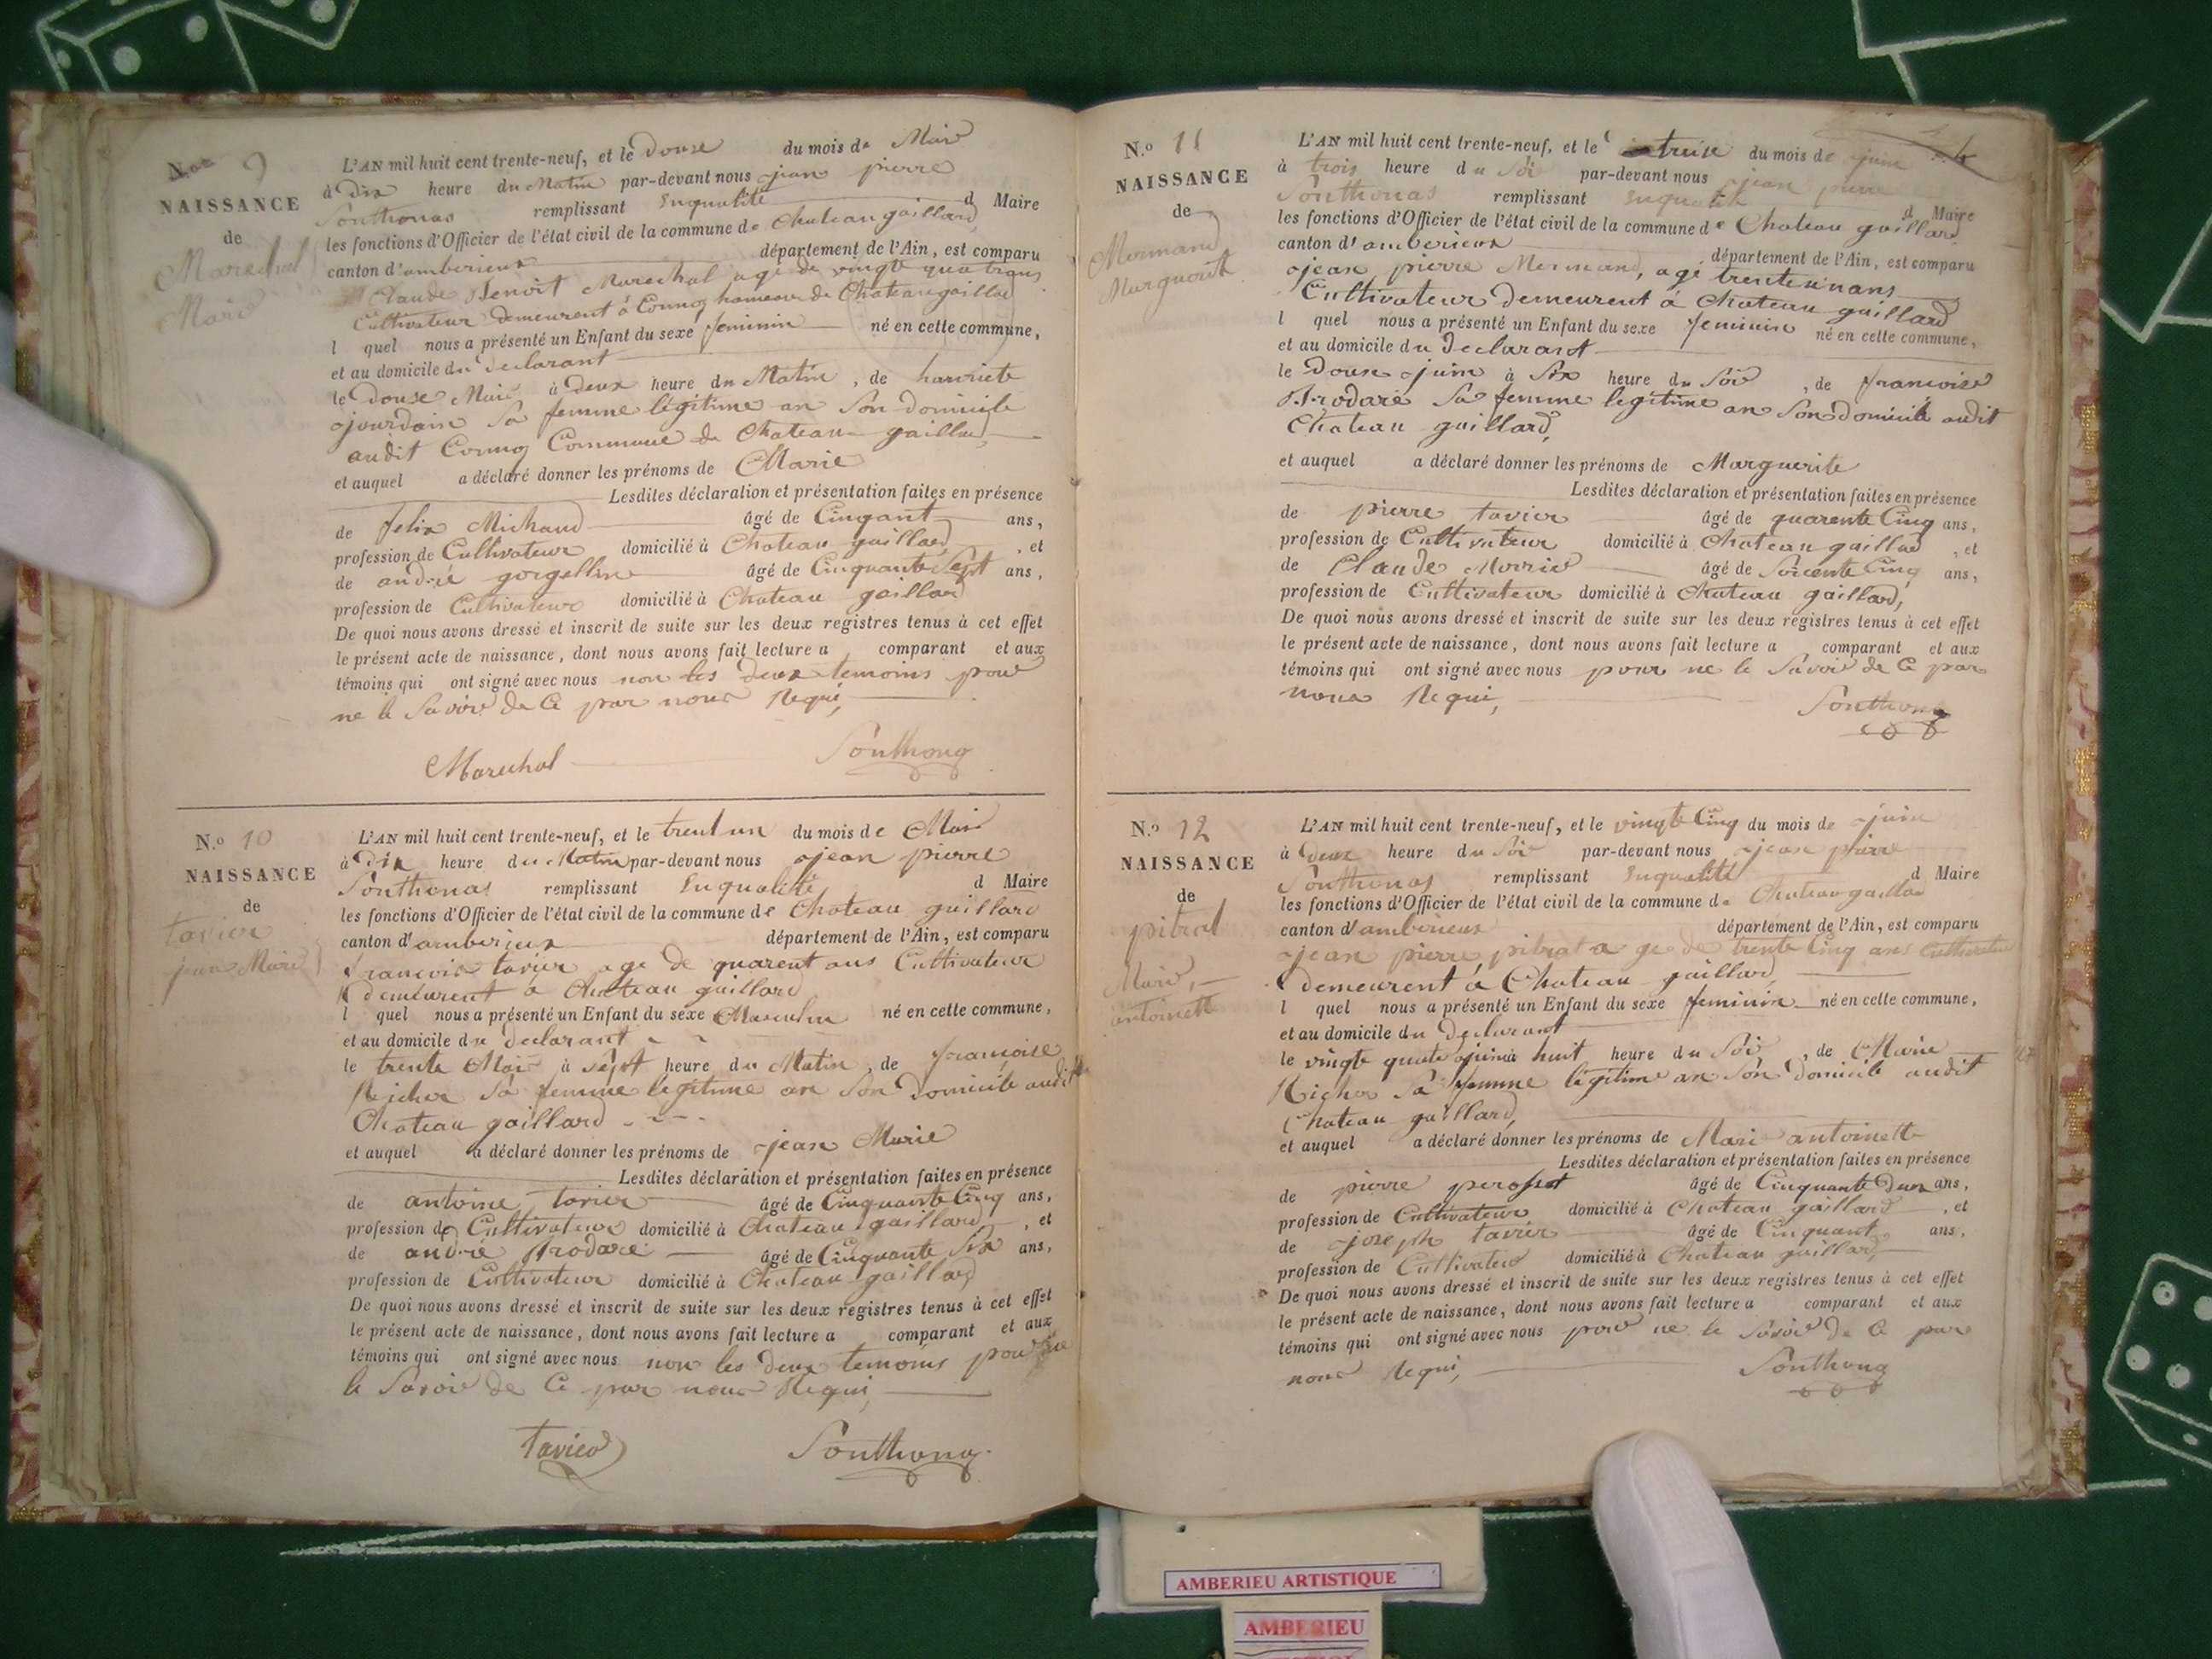 N.o 9
NAISSANCE
de
Marechal
Marie
L'AN mil huit cent trente-neuf, et le douse du mois de Mai
à dix heure du Matin par-devant nous jean pierre
Sonthonas remplissant Enqualité d Maire
les fonctions d'Officier de l'état civil de la commune de Chateau gaillard
canton d'amberieux département de l'Ain, est comparu
Claude Benoit Marechal agé de vingte quatrans
Cultivateur demeurent à Cormoz hameau de Chateau gaillard
l quel nous a présenté un Enfant du sexe feminin né en cette commune,
et au domicile du declarant
le douse Mai à deux heure du Matin, de hanriete
jourdain sa femme légitime an son domicile
audit Cormoz Commune de Chateau gaillard
et auquel a déclaré donner les prénoms de Marie
Lesdites déclaration et présentation faites en présence
de felix Michaud âgé de Cinqant ans,
profession de Cultivateur domicilié à Chateau gaillard, et
de andré gorgellin âgé de Cinquante Sept ans,
profession de Cultivateur domicilié à Chateau gaillard
De quoi nous avons dressé et inscrit de suite sur les deux registres tenus à cet effet
le présent acte de naissance, dont nous avons fait lecture a comparant et aux
témoins qui ont signé avec nous non les deux temoins pour
ne le savoir de Ce par nous Requi,
Marechal Sonthonas
N.o 10
NAISSANCE
de
tavier
jean Marie
L'AN mil huit cent trente-neuf, et le trent un du mois de Mai
à dix heure du Matin par-devant nous jean pierre
Sonthonas remplissant Enqualité d Maire
les fonctions d'Officier de l'état civil de la commune de Chateau gaillard
canton d'amberieux département de l'Ain, est comparu
francois tavier age de quarent ans Cultivateur
demeurent a Chateau gaillard
l quel nous a présenté un Enfant du sexe Masculin né en cette commune,
et au domicile du declarant
le trente Mai à sept heure du Matin, de francoise
Richer sa femme legitime an son domicile audit
Chateau gaillard
et auquel a déclaré donner les prénoms de jean Marie
Lesdites déclaration et présentation faites en présence
de antoine tavier âgé de Cinquante Cinq ans,
profession de Cultivateur domicilié à Chateau gaillard, et
de andré Brodare âgé de Cinquante Six ans,
profession de Cultivateur domicilié à Chateau gaillard
De quoi nous avons dressé et inscrit de suite sur les deux registres tenus à cet effet
le présent acte de naissance, dont nous avons fait lecture a comparant et aux
témoins qui ont signé avec nous non les deux temoins pour ne
le savoir de Ce par nous Requi,
tavier Sonthonas
N.o 11
NAISSANCE
de
Mermand
Marguerite
L'AN mil huit cent trente-neuf, et le treise du mois de juin
à trois heure du Soir par-devant nous jean pierre
Sonthonas remplissant Enqualité d Maire
les fonctions d'Officier de l'état civil de la commune de Chateau gaillard
canton d'amberieux département de l'Ain, est comparu
jean pierre Mermand, agé trenteunans
Cultivateur demeurent à Chateau gaillard
l quel nous a présenté un Enfant du sexe feminin né en cette commune,
et au domicile du declarant
le douse juin à Six heure du Soir, de francoise
Brodare Sa femme legitime an son domicile audit
Chateau gaillard,
et auquel a déclaré donner les prénoms de Marguerite
Lesdites déclaration et présentation faites en présence
de pierre tavier âgé de quarente Cinq ans,
profession de Cultivateur domicilié à Chateau gaillard, et
de Claude Morrier âgé de Soicente Cinq ans,
profession de Cultivateur domicilié à Chateau gaillard,
De quoi nous avons dressé et inscrit de suite sur les deux registres tenus à cet effet
le présent acte de naissance, dont nous avons fait lecture a comparant et aux
témoins qui ont signé avec nous pour ne le savoir de Ce par
nous Requi,
Sonthonas
N.o 12
NAISSANCE
de
pitrat
Marie,
antoinette
L'AN mil huit cent trente-neuf, et le vingte Cinq du mois de juin
à deux heure du Soir par-devant nous jean pierre
Sonthonas remplissant Enqualité d Maire
les fonctions d'Officier de l'état civil de la commune de Chateau gaillard
canton d'amberieux département de l'Ain, est comparu
jean pierre pitrat age de trente Cinq ans Cultivateur
demeurent à Chateau gaillard
l quel nous a présenté un Enfant du sexe feminin né en cette commune,
et au domicile du declarant
le vingte quatre juin à huit heure du Soir, de Marie
Richer sa femme légitime an son domicile audit
Chateau gaillard,
et auquel a déclaré donner les prénoms de Marie antoinette
Lesdites déclaration et présentation faites en présence
de pierre perosset âgé de Cinquante deux ans,
profession de Cultivateur domicilié à Chateau gaillard, et
de joseph tavier âgé de Cinquant ans,
profession de Cultivateur domicilié à Chateau gaillard,
De quoi nous avons dressé et inscrit de suite sur les deux registres tenus à cet effet
le présent acte de naissance, dont nous avons fait lecture a comparant et aux
témoins qui ont signé avec nous pour ne le savoir de Ce par
nous Requi,
Sonthonas
AMBERIEU ARTISTIQUE
AMBERIEU